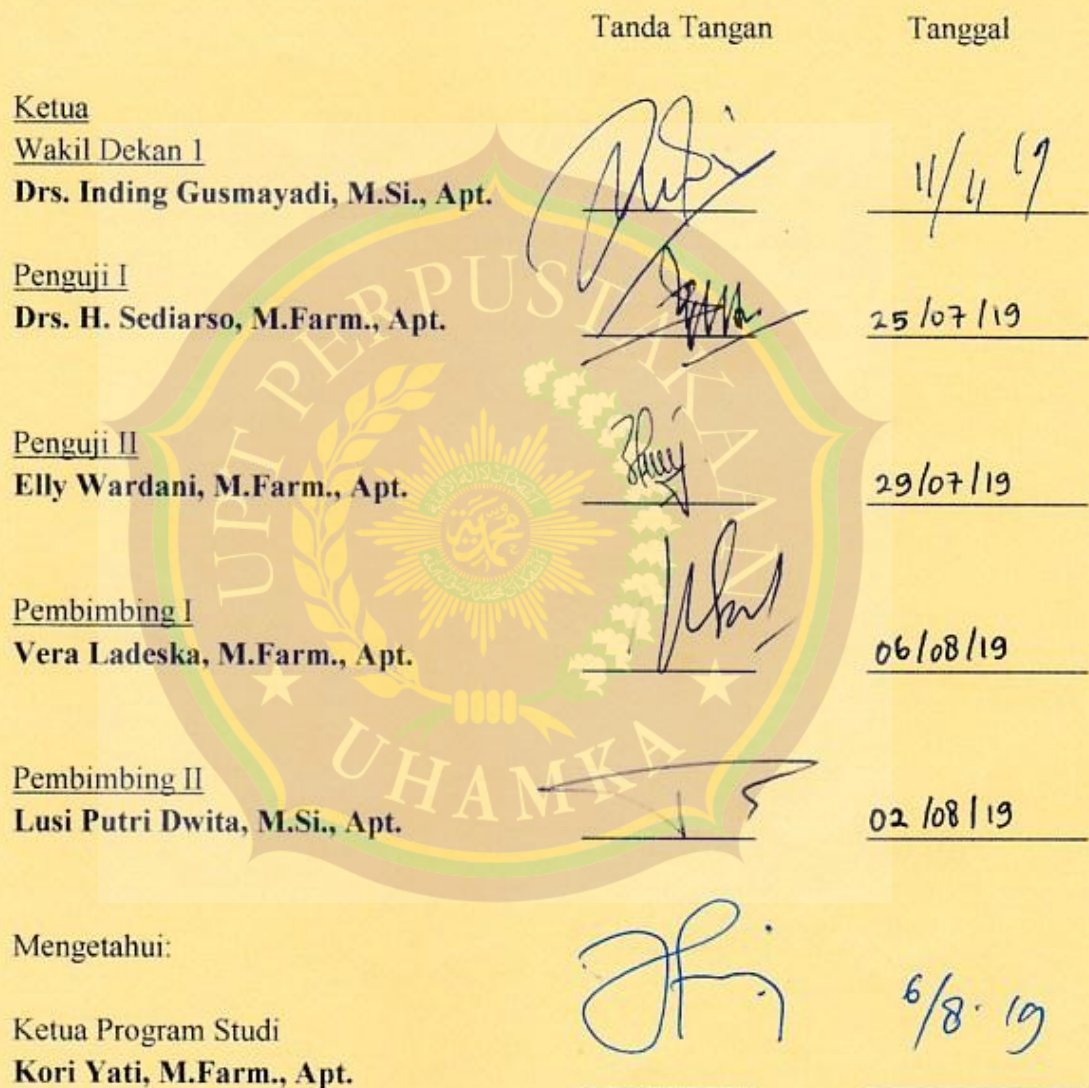 Tanda Tangan Tanggal
Ketua
Wakil Dekan 1
Drs. Inding Gusmayadi, M.Si., Apt. 11/11 19
Penguji I
Drs. H. Sediarso, M.Farm., Apt. 25/07/19
Penguji II
Elly Wardani, M.Farm., Apt. 29/07/19
Pembimbing I
Vera Ladeska, M.Farm., Apt. 06/08/19
Pembimbing II
Lusi Putri Dwita, M.Si., Apt. 02/08/19
Mengetahui:
Ketua Program Studi 6/8.19
Kori Yati, M.Farm., Apt.
UPT PERPUSTAKAAN
UHAMKA